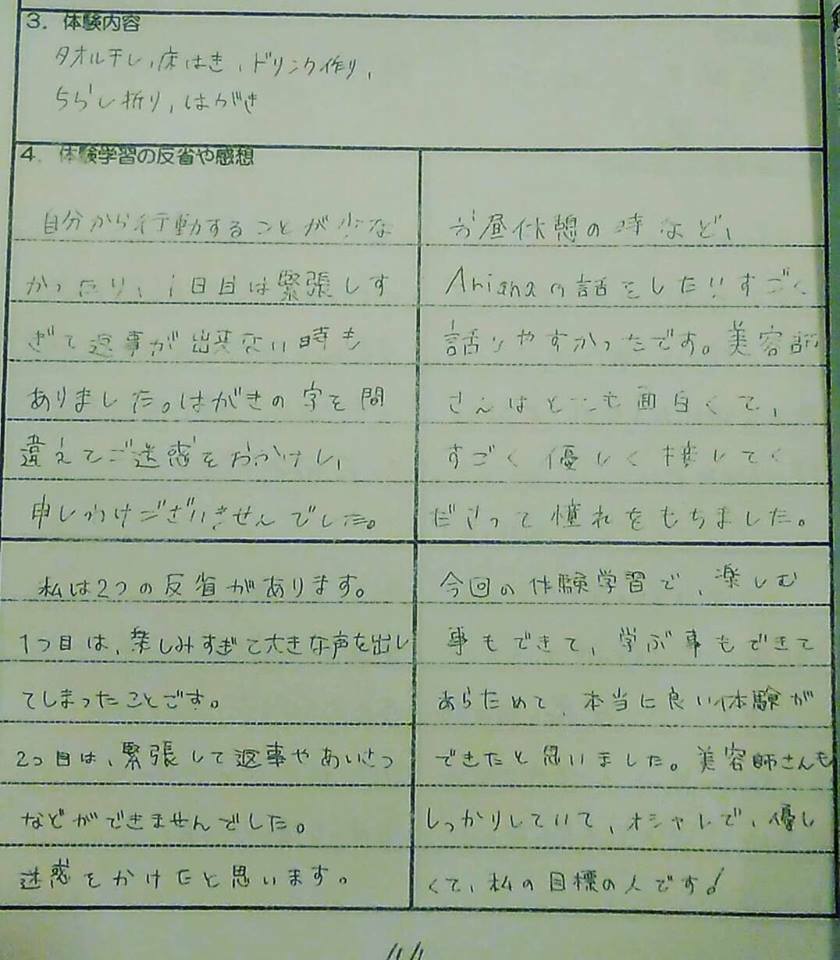 3. 体験内容
タオル干し,床はき,ドリンク作り,
ちらし折り,はがき
4. 体験学習の反省や感想
自分から行動することが少な
かったり、1日目は緊張しす
ぎて返事が出来ない時も
ありました。はがきの字を間
違えてご迷惑をおかけし、
申しわけございませんでした。
お昼休憩の時など、
Arianaの話をしたりすごく
話しやすかったです。美容師
さんはとても面白くて、
すごく優しく接してく
ださって憧れをもちました。
私は2つの反省があります。
1つ目は、楽しみすぎて大きな声を出し
てしまったことです。
2つ目は、緊張して返事やあいさつ
などができませんでした。
迷惑をかけたと思います。
今回の体験学習で、楽しむ
事もできて、学ぶ事もできて
あらためて、本当に良い体験が
できたと思いました。美容師さんも
しっかりしていて、オシャレで、優し
くて、私の目標の人です!